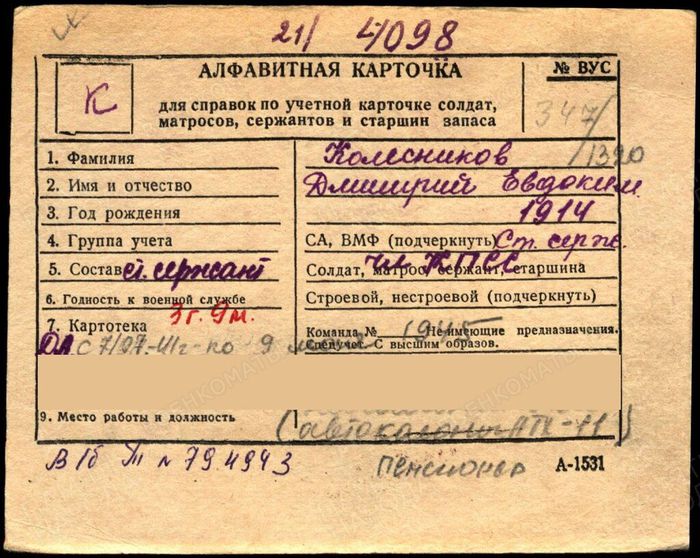 21/ 4098
АЛФАВИТНАЯ КАРТОЧКА
№ ВУС
К
для справок по учетной карточке солдат,
матросов, сержантов и старшин запаса
347/
/1390
1. Фамилия Колесников
2. Имя и отчество Дмитрий Евдоким
3. Год рождения 1914
4. Группа учета СА, ВМФ (подчеркнуть) Ст. серж.
5. Состав ст. сержант Солдат, матрос, сержант, старшина
чл КПСС
6. Годность к военной службе Строевой, нестроевой (подчеркнуть)
3г. 9м.
7. Картотека Команда № Не имеющие предназначения.
Спецучет. С высшим образов.
с 7/07-41г-по 9 мая 1945
9. Место работы и должность
(автоколонна АТХ-11)
В 16 № 794943 пенсионер А-1531